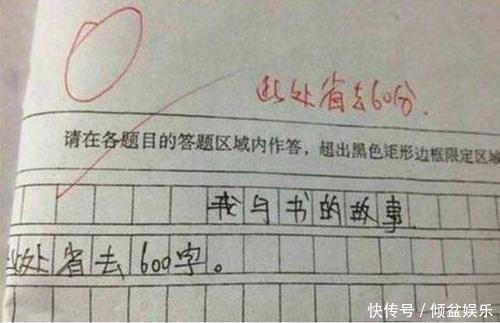 此处省去60分.
请在各题目的答题区域内作答，超出黑色矩形边框限定区域
我与书的故事.
此处省去600字。
快传号／倾盆娱乐